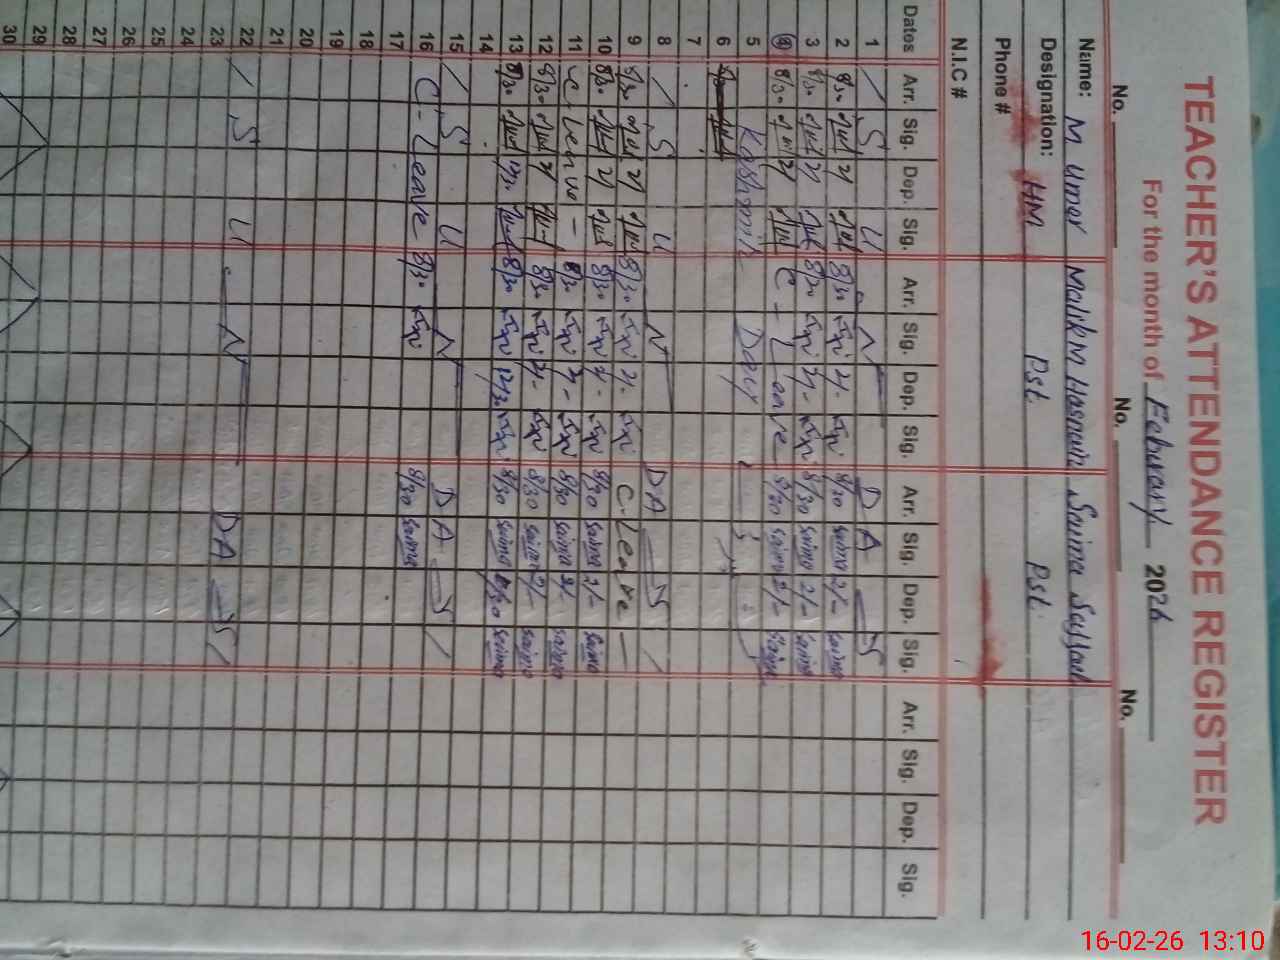 TEACHER'S ATTENDANCE REGISTER
For the month of February 2026
No. No. No.
Name: M Umar Malik M Hasnain Saima Sajjad
Designation: HM Pst. Pst.
Phone #
N.I.C #
Dates Arr. Sig. Dep. Sig. Arr. Sig. Dep. Sig. Arr. Sig. Dep. Sig. Arr. Sig. Dep. Sig.
1 S U N D A Y
2 8/30 2/ 8/30 2/- 8/30 Saima 2/- Saima
3 8/30 2/ 8/30 2/- 8/30 Saima 2/- Saima
4 8/30 2/ C - Leave 8/30 Saima 2/- Saima
5 Kashmir Day
6
7
8 S U N D A Y
9 8/30 2/ 8/30 2/- C-Leave —
10 8/30 2/ 8/30 2/- 8/30 Saima 2/- Saima
11 C-Leave — 8/30 2/- 8/30 Saima 2/- Saima
12 8/30 2/ 8/30 2/- 8/30 Saima 2/- Saima
13 8/30 12/30 8/30 12/30 8/30 Saima 12/30 Saima
14
15 S U N D A Y
16 C - Leave 8/30 8/30 Saima
17
18
19
20
21
22 S U N D A Y
23
24
25
26
27
28
29
30
16-02-26 13:10